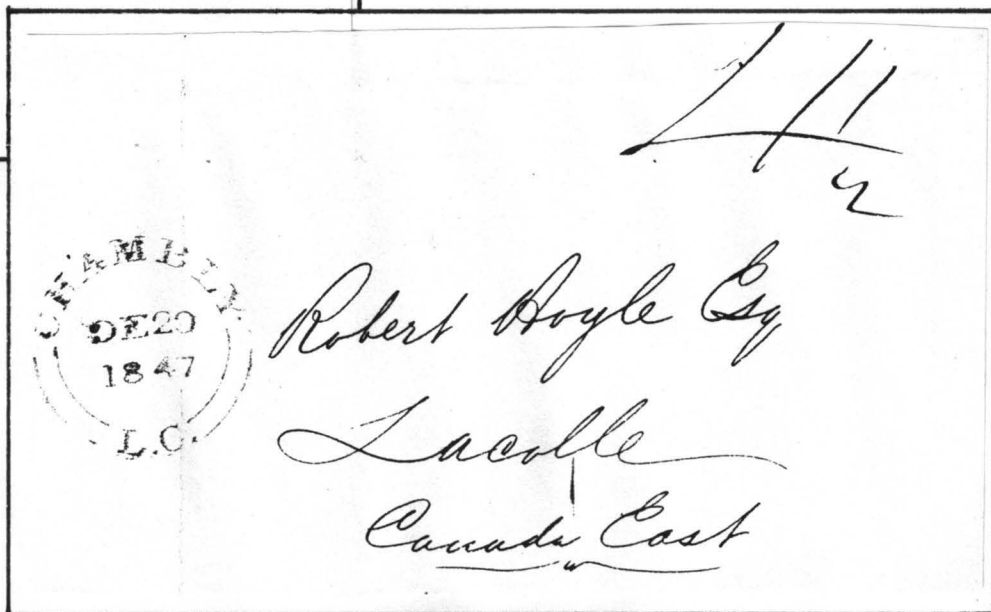 4 1/2
CHAMBLY
DE 20
1847
L.C.
Robert Hoyle Esq
Lacolle
Canada East